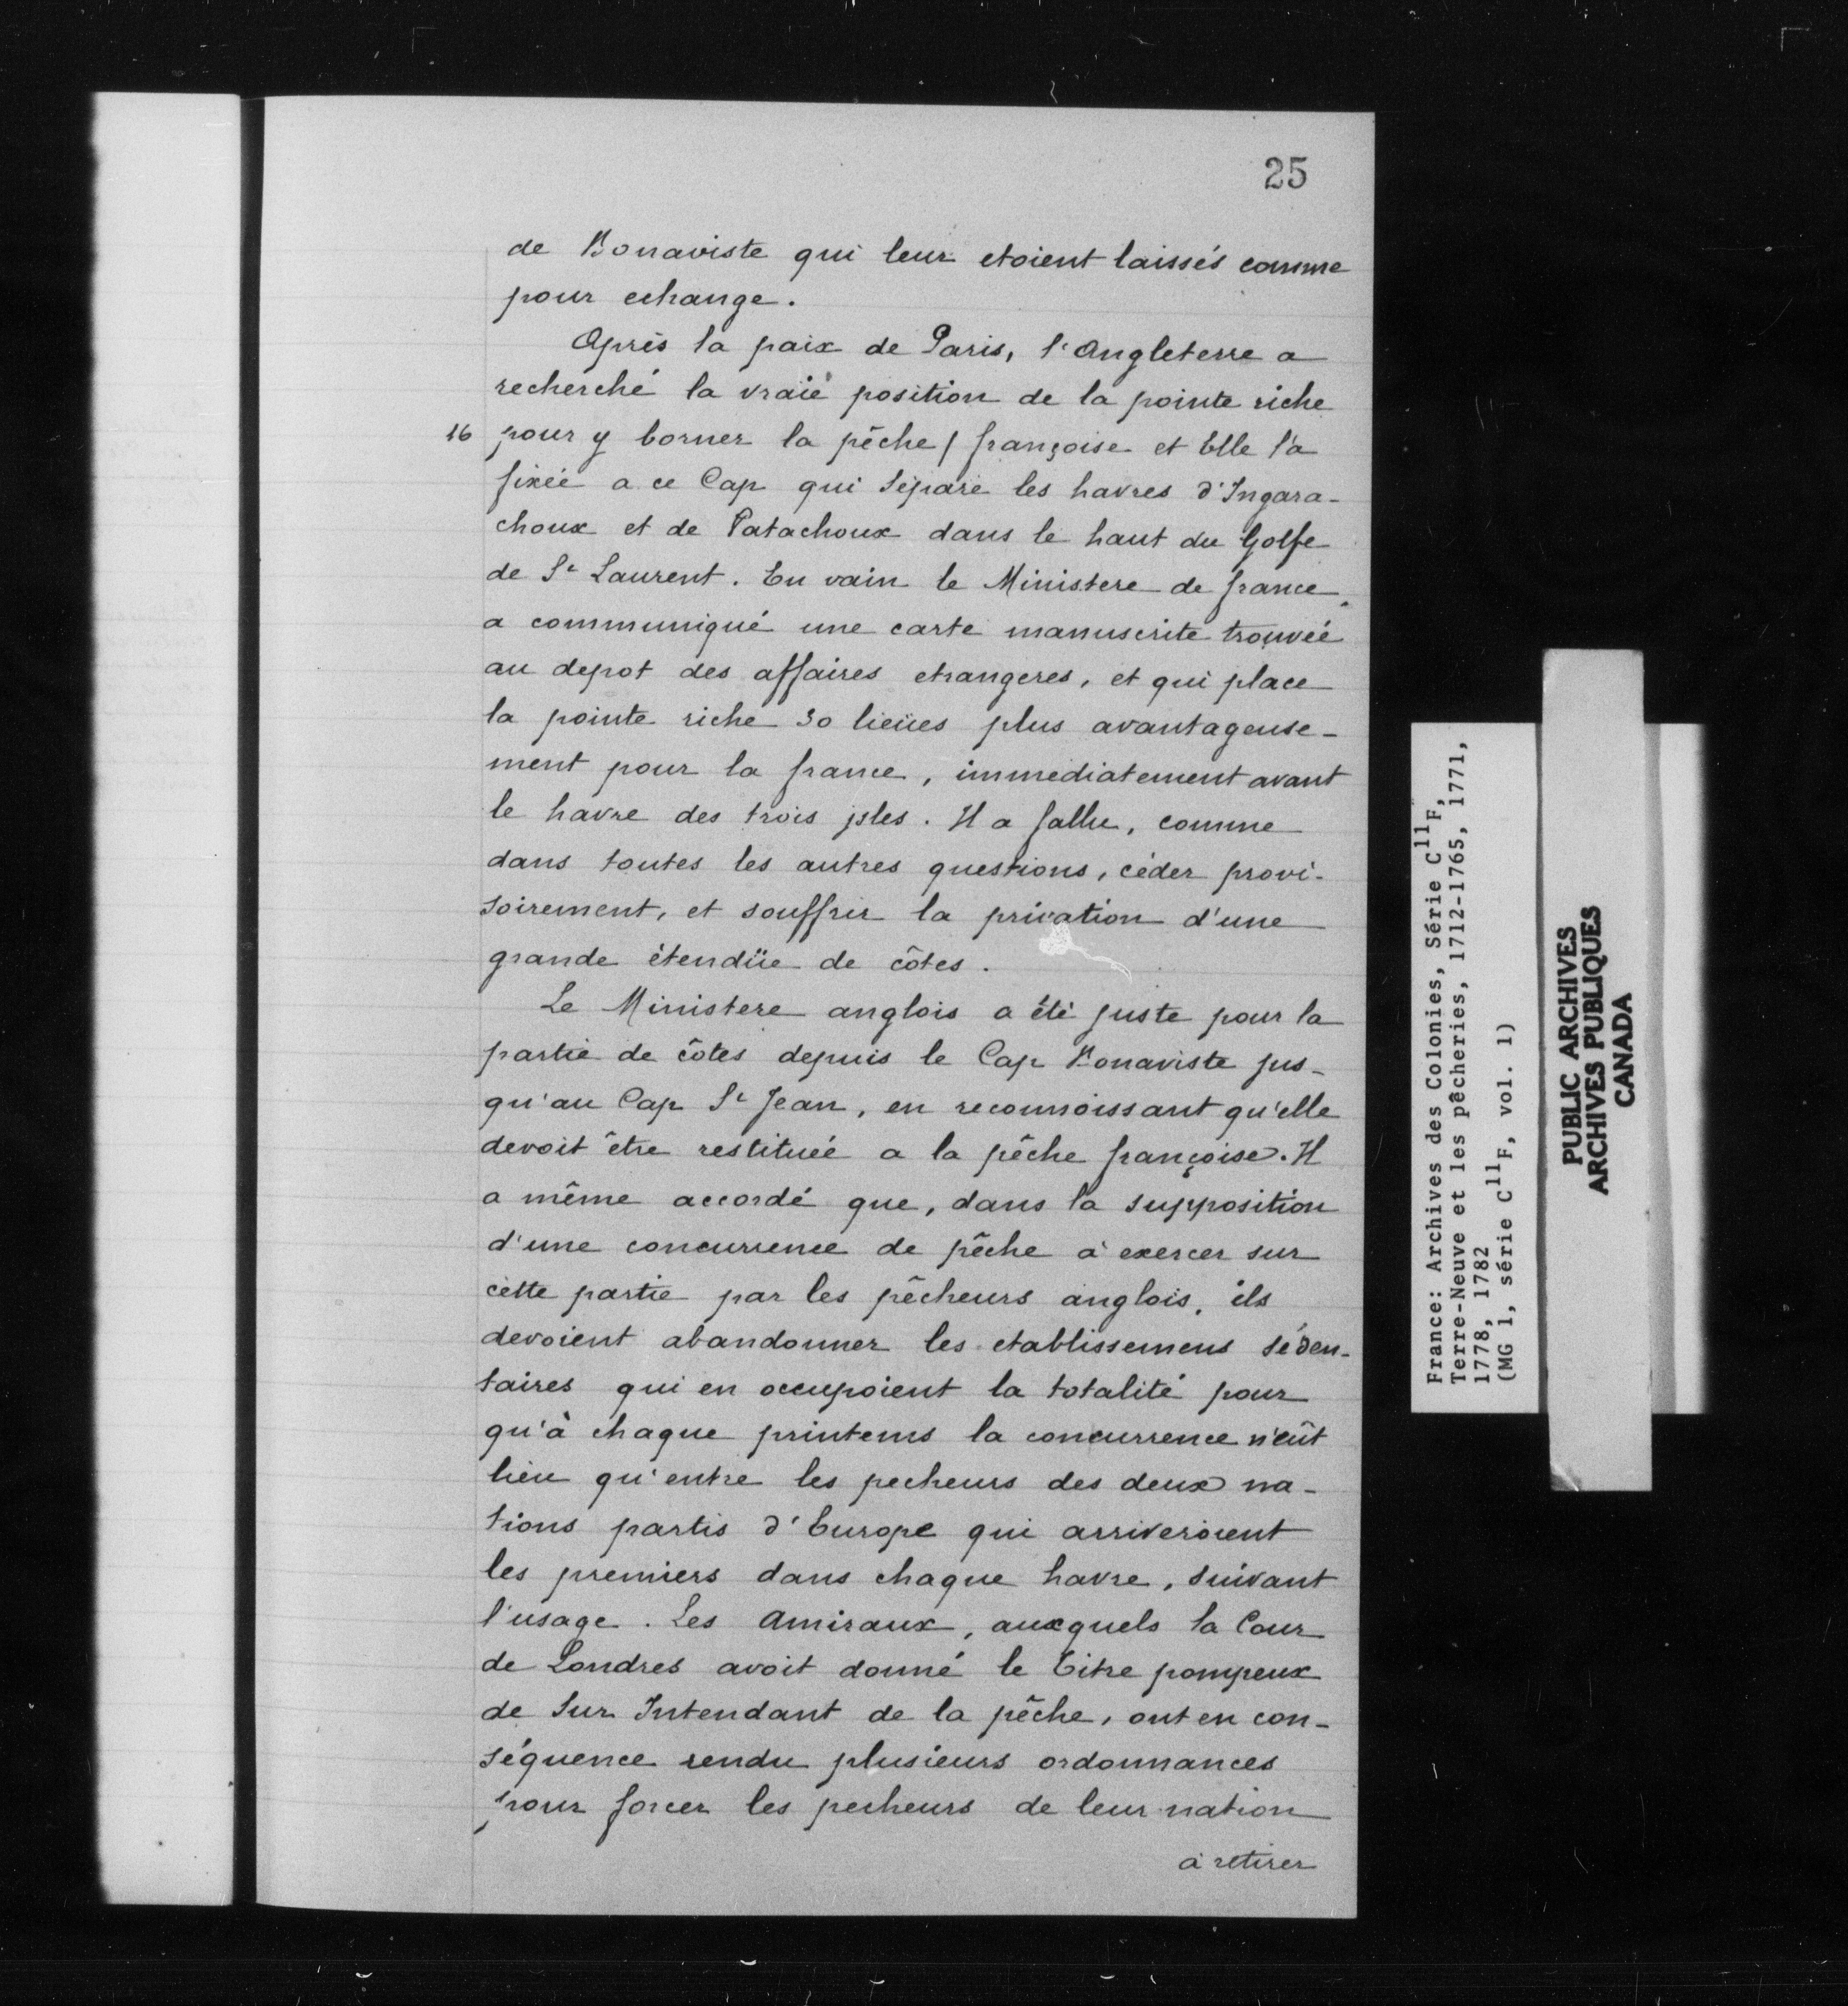 25
de Bonaviste qui leur etoient laissés comme
pour echange.
Après la paix de Paris, l'Angleterre a
recherché la vraie position de la pointe riche
16 pour y borner la pêche / françoise et Elle l'a
fixée a ce Cap qui sépare les havres d'Ingara-
choux et de Patachoux dans le haut du Golfe
de St Laurent. En vain le Ministere de france
a communiqué une carte manuscrite trouvée
au depot des affaires etrangeres, et qui place
la pointe riche 30 lieües plus avantageuse-
ment pour la france, immediatement avant
le havre des trois jsles. Il a fallu, comme
dans toutes les autres questions, céder provi-
soirement, et souffrir la privation d'une
grande étendüe de côtes.
Le Ministere anglois a été juste pour la
partie de côtes depuis le Cap Bonaviste jus-
qu'au Cap St Jean, en reconnoissant qu'elle
devoit être restituée a la pêche françoise. Il
a même accordé que, dans la supposition
d'une concurrence de pêche à exercer sur
cette partie par les pêcheurs anglois, ils
devoient abandonner les etablissemens séden-
taires qui en occupoient la totalité pour
qu'à chaque printems la concurrence n'eût
lieu qu'entre les pecheurs des deux na-
tions partis d'Europe qui arriveroient
les premiers dans chaque havre, suivant
l'usage. Les Amiraux, auxquels la Cour
de Londres avoit donné le Titre pompeux
de Sur Intendant de la pêche, ont en con-
séquence rendu plusieurs ordonnances
pour forcer les pecheurs de leur nation
à retirer
France: Archives des Colonies, Série C11F,
Terre-Neuve et les pêcheries, 1712-1765, 1771,
1778, 1782
(MG 1, série C11F, vol. 1)
PUBLIC ARCHIVES
ARCHIVES PUBLIQUES
CANADA